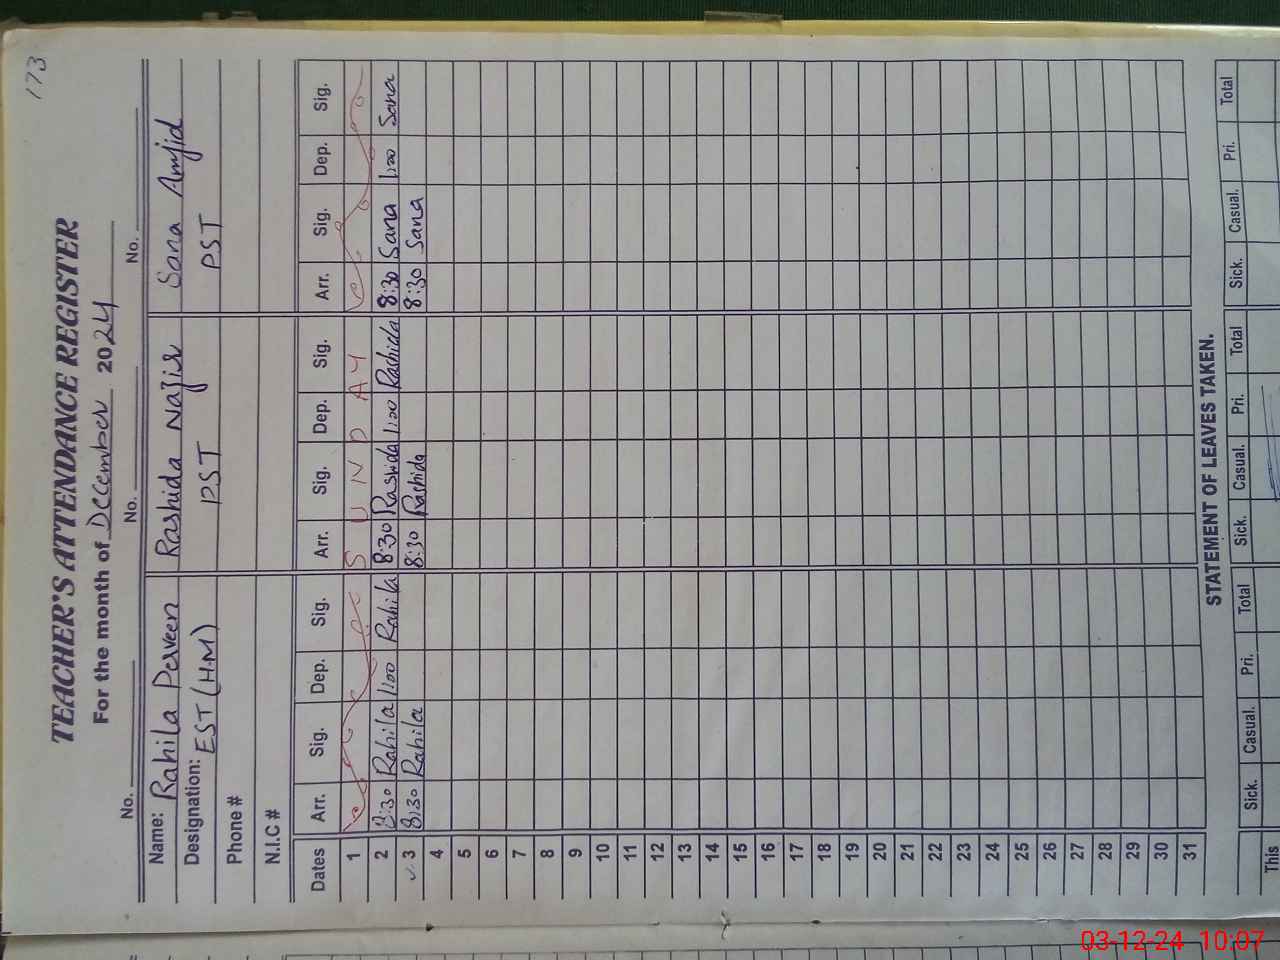 173
TEACHER'S ATTENDANCE REGISTER
For the month of December 2024
No. No. No.
Name: Rahila Perveen Rashida Nazir Sana Amjid
Designation: EST (H.M) PST PST
Phone #
N.I.C #
Dates Arr. Sig. Dep. Sig. Arr. Sig. Dep. Sig. Arr. Sig. Dep. Sig.
1 S U N D A Y
2 8:30 Rahila 1:00 Rahila 8:30 Rashida 1:00 Rashida 8:30 Sana 1:00 Sana
3 8:30 Rahila 8:30 Rashida 8:30 Sana
4
5
6
7
8
9
10
11
12
13
14
15
16
17
18
19
20
21
22
23
24
25
26
27
28
29
30
31
STATEMENT OF LEAVES TAKEN.
Sick. Casual. Pri. Total Sick. Casual. Pri. Total Sick. Casual. Pri. Total
This
03-12-24 10:07